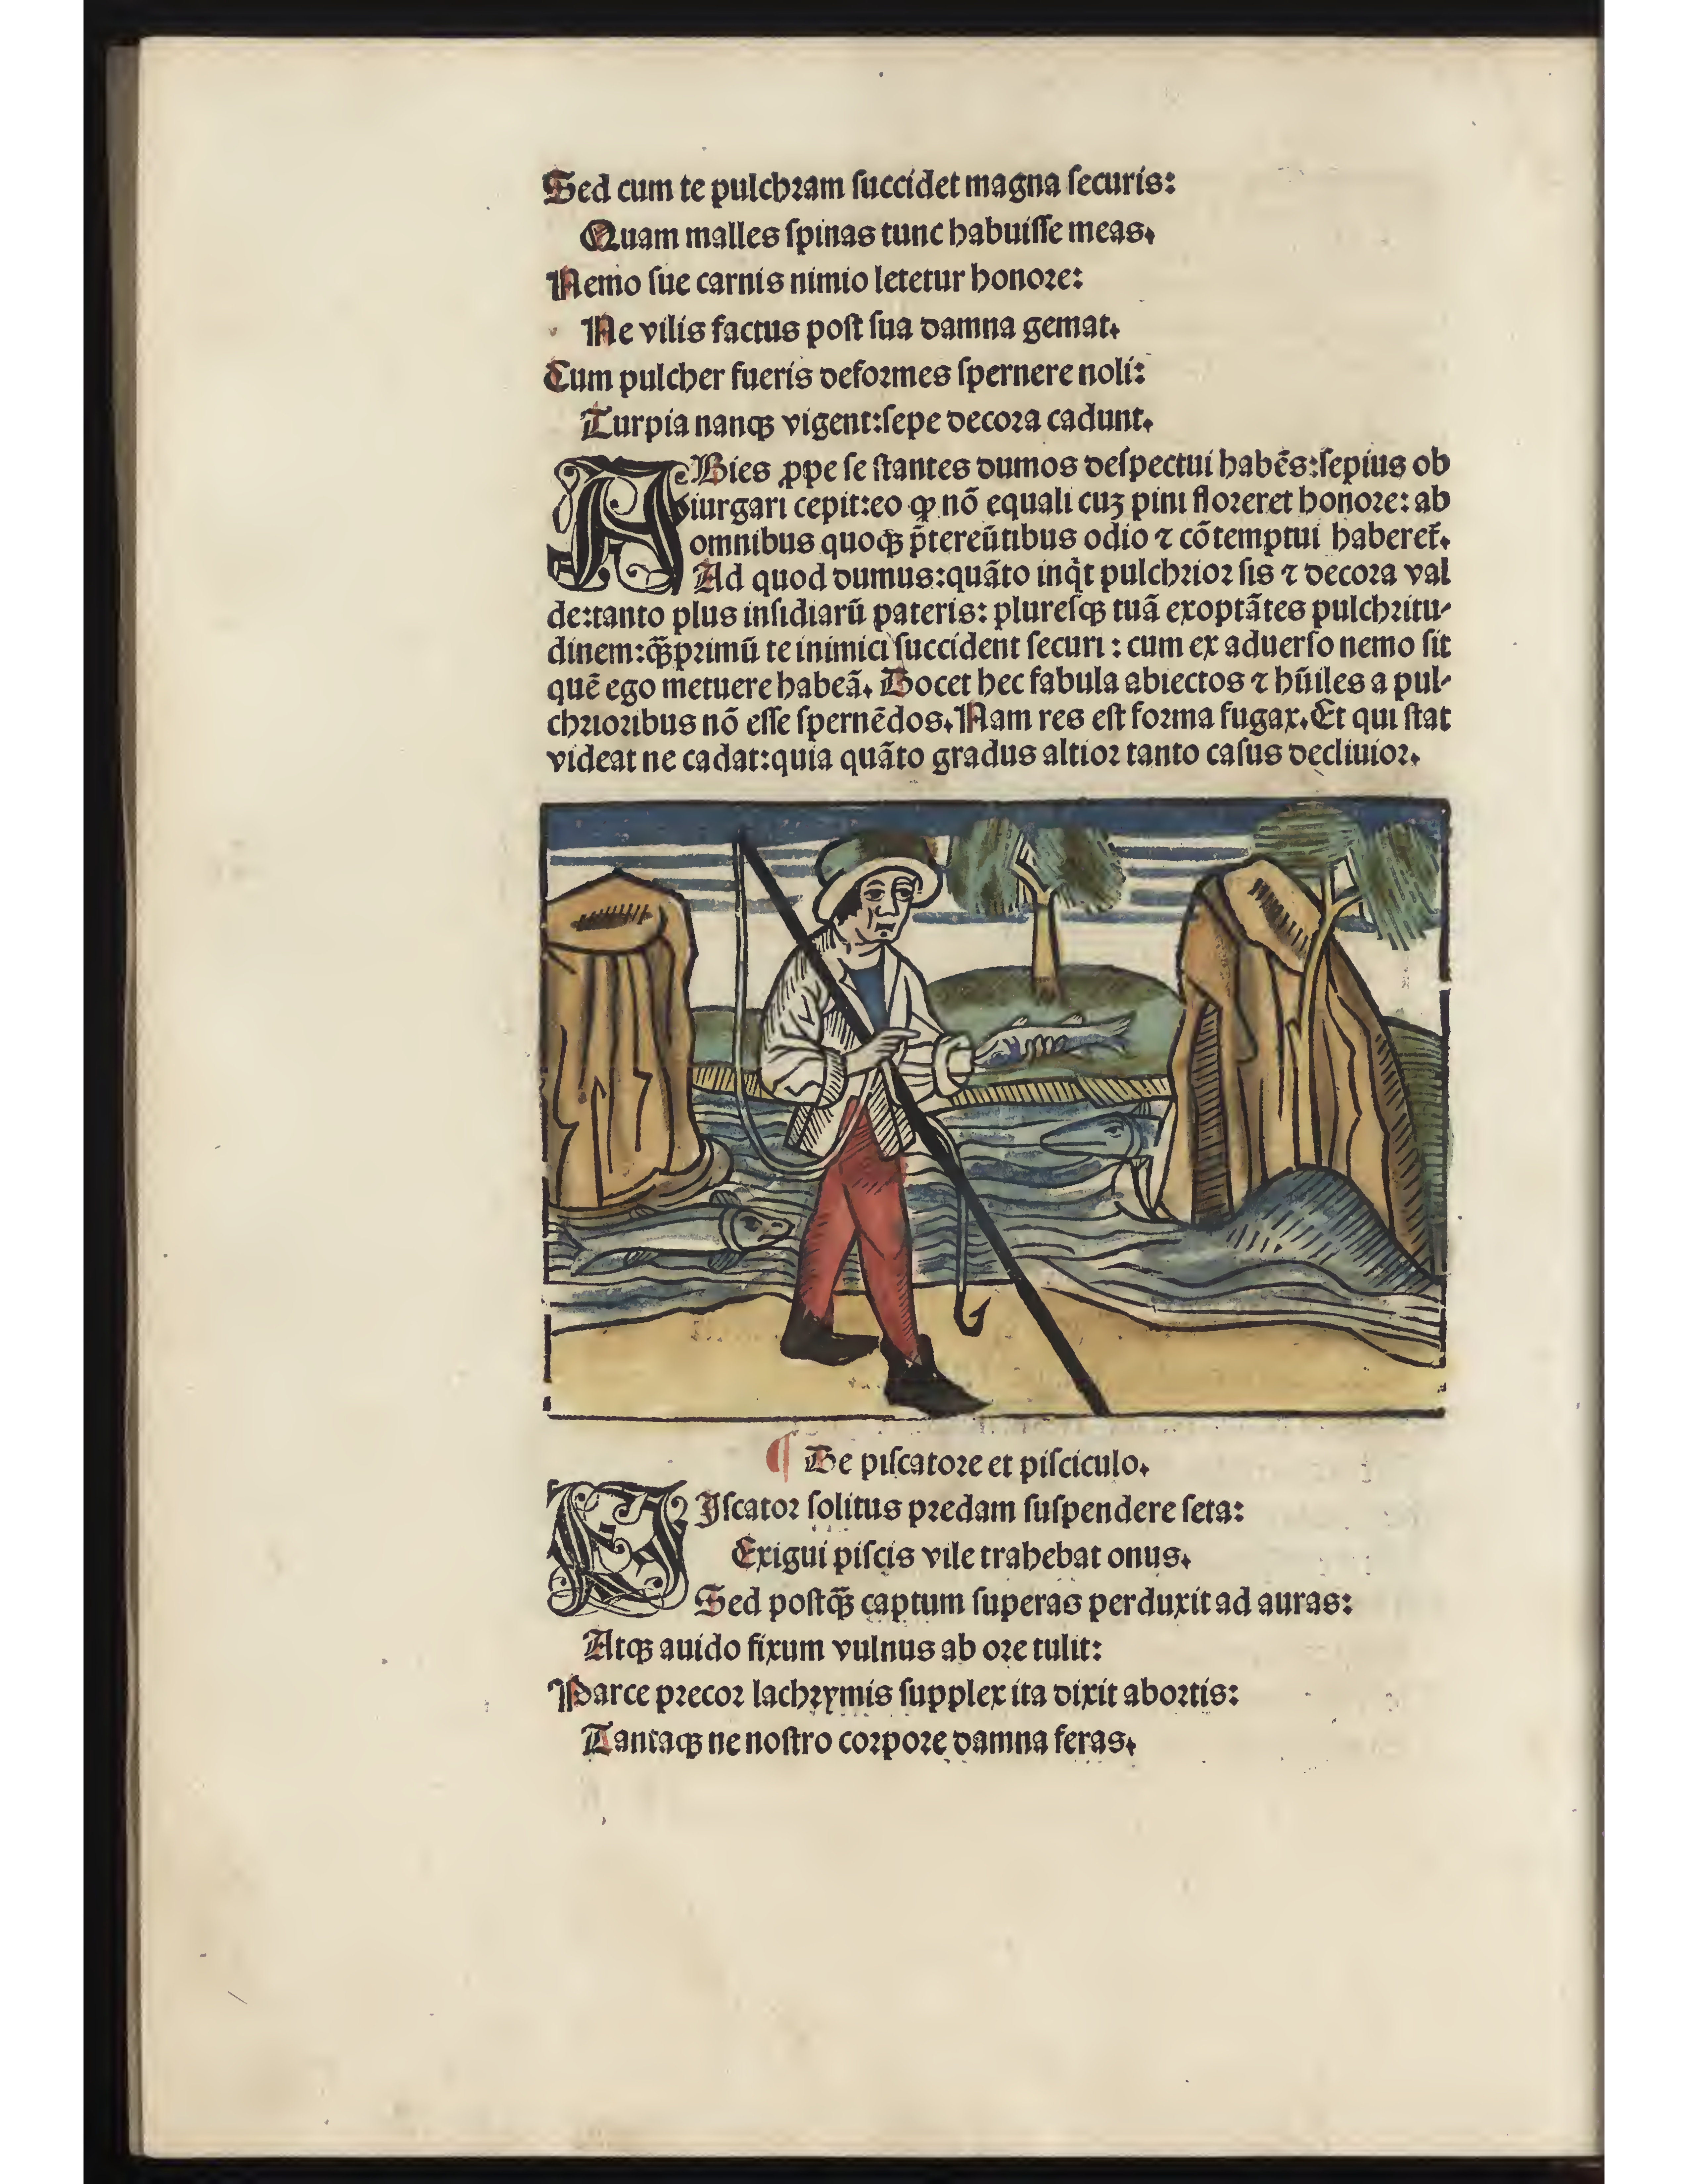 Sed cum te pulchram ſuccidet magna ſecuris:
Quam malles ſpinas tunc habuiſſe meas.
Nemo ſue carnis nimio letetur honore:
Ne vilis factus poſt ſua damna gemat.
Cum pulcher fueris deformes ſpernere noli:
Turpia nanqꝫ vigent:ſepe decora cadunt.
ABies ꝓpe ſe ſtantes dumos deſpectui habēs:ſepius ob
iurgari cepit:eo ꝙ nō equali cuꝫ pini floreret honore: ab
omnibus quoqꝫ p̄tereūtibus odio ⁊ cōtemptui haberet̄.
Ad quod dumus:quāto inq̇t pulchrior ſis ⁊ decora val
de:tanto plus inſidiarū pateris: plureſqꝫ tuā exoptātes pulchritu-
dinem:qꝫ̄primū te inimici ſuccident ſecuri : cum ex aduerſo nemo ſit
quē ego metuere habeā. Docet hec fabula abiectos ⁊ hūiles a pul-
chrioribus nō eſſe ſpernēdos. Nam res eſt forma fugax. Et qui ſtat
videat ne cadat:quia quāto gradus altior tanto caſus decliuior.
¶ De piſcatore et piſciculo.
PIſcator ſolitus predam ſuſpendere ſeta:
Exigui piſcis vile trahebat onus.
Sed poſtqꝫ̄ captum ſuperas perduxit ad auras:
Atqꝫ auido fixum vulnus ab ore tulit:
Parce precor lachrymis ſupplex ita dixit abortis:
Tantaqꝫ ne noſtro corpore damna feras.